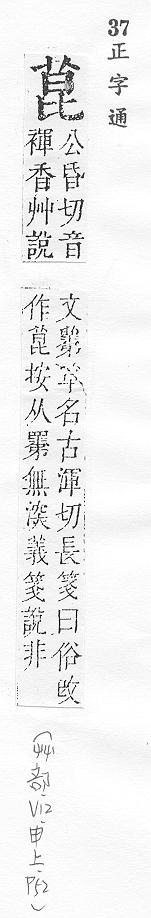 37
正字通
菎
公昏切音
褌香艸說
文草名古渾切長箋曰俗改
作菎按从罤無深義箋說非
(艸部·V12·申上·P52)